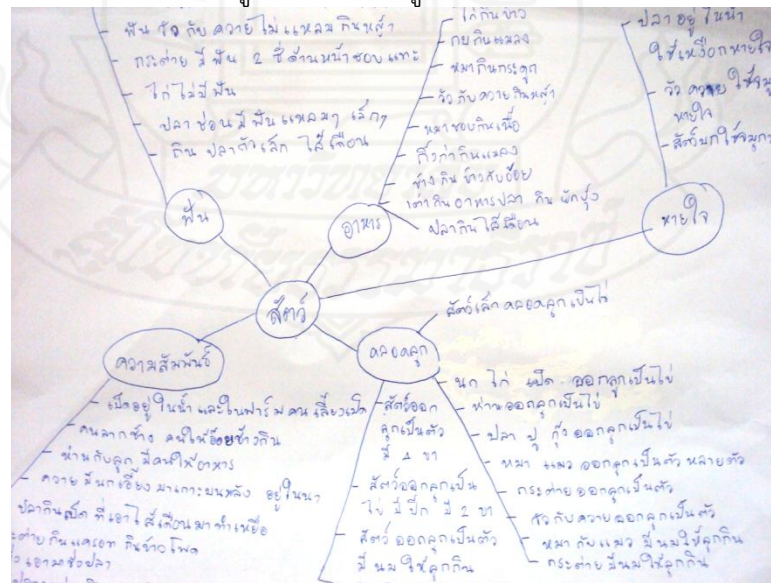 ฟันวัวกับควายไม่แหลมกินหญ้า
กระต่ายมีฟัน 2 ซี่ด้านหน้าชอบแทะ
ไก่ไม่มีฟัน
ปลาช่อนมีฟันแหลมๆ เล็กๆ
กินปลาตัวเล็ก ไส้เดือน
ฟัน
ไก่กินข้าว
กบกินแมลง
หมากินกระดูก
วัวกับควายกินหญ้า
หมาชอบกินเนื้อ
กิ้งก่ากินแมลง
ช้างกินข้าวกับอ้อย
เต่ากินอาหารปลา กินผักบุ้ง
ปลากินไส้เดือน
อาหาร
ปลาอยู่ในน้ำ
ใช้เหงือกหายใจ
วัว ควาย ใช้จมูก
หายใจ
สัตว์บกใช้จมูก
หายใจ
สัตว์
ความสัมพันธ์
เป็ดอยู่ในน้ำและในฟาร์มคนเลี้ยงเป็ด
คนลากช้าง คนให้อ้อยช้างกิน
ห่านกับลูก มีคนให้อาหาร
ควายมีนกเอี้ยงมาเกาะบนหลัง อยู่ในนา
ปลากินเบ็ด ที่เอาไส้เดือนมาทำเหยื่อ
ะต่ายกินแครอท กินข้าวโพด
คลอดลูก
สัตว์เล็กคลอดลูกเป็นไข่
นก ไก่ เป็ด ออกลูกเป็นไข่
ห่านออกลูกเป็นไข่
ปลา ปู กุ้ง ออกลูกเป็นไข่
หมา แมว ออกลูกเป็นตัว หลายตัว
กระต่ายออกลูกเป็นตัว
วัวกับควายออกลูกเป็นตัว
หมากับแมว มีนมให้ลูกกิน
กระต่ายมีนมให้ลูกกิน
สัตว์ออก
ลูกเป็นตัว
มี 4 ขา
สัตว์ออกลูกเป็น
ไข่ มีปีก มี 2 ขา
สัตว์ออกลูกเป็นตัว
มีนมให้ลูกกิน